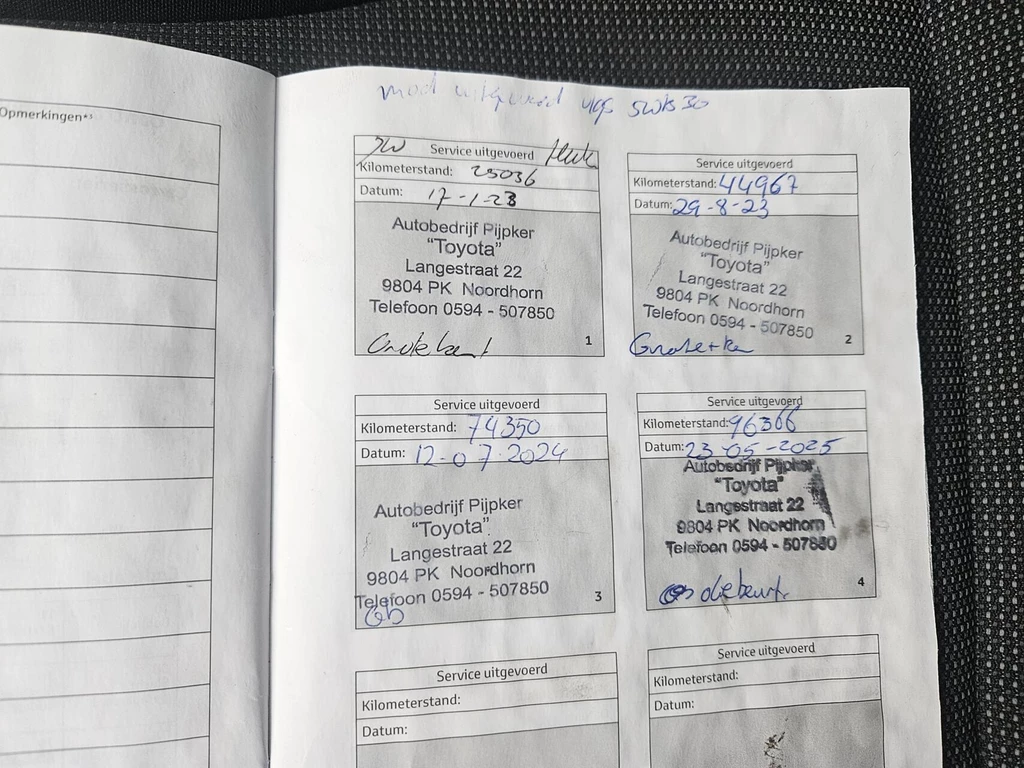 Opmerkingen*³
mod uitgevoerd
Service uitgevoerd
Kilometerstand: 25036
Datum: 17-1-23
Autobedrijf Pijpker
"Toyota"
Langestraat 22
9804 PK Noordhorn
Telefoon 0594 - 507850
1
Service uitgevoerd
Kilometerstand: 44967
Datum: 29-8-23
Autobedrijf Pijpker
"Toyota"
Langestraat 22
9804 PK Noordhorn
Telefoon 0594 - 507850
2
Service uitgevoerd
Kilometerstand: 74350
Datum: 12-07-2024
Autobedrijf Pijpker
"Toyota"
Langestraat 22
9804 PK Noordhorn
Telefoon 0594 - 507850
3
Service uitgevoerd
Kilometerstand: 96366
Datum: 23-05-2025
Autobedrijf Pijpker
"Toyota"
Langestraat 22
9804 PK Noordhorn
Telefoon 0594 - 507850
4
Service uitgevoerd
Kilometerstand:
Datum:
Service uitgevoerd
Kilometerstand:
Datum: